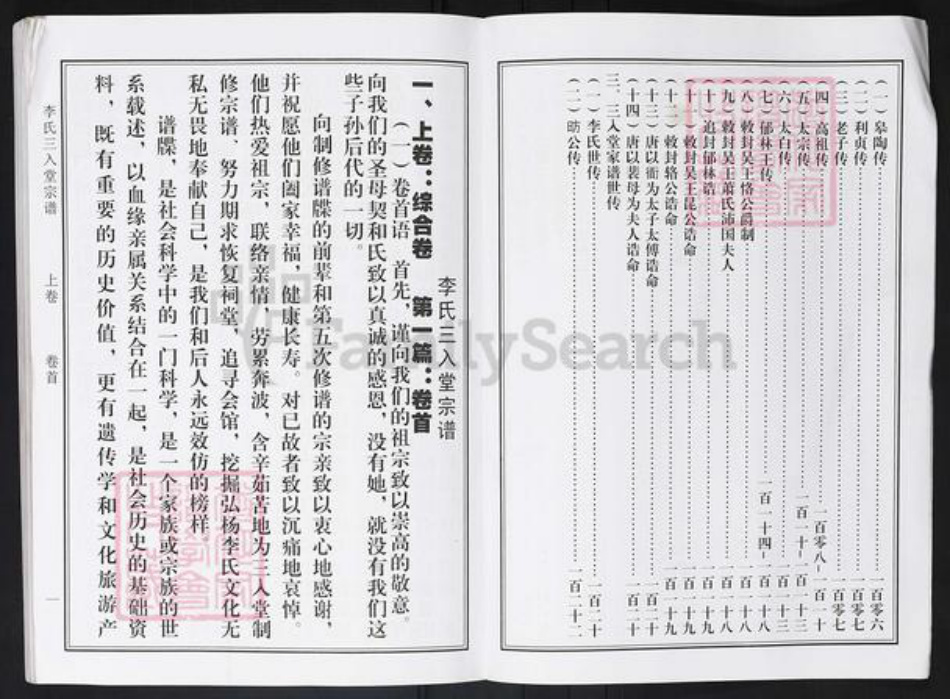 （一）皋陶传……一百零六
（二）利贞传……一百零七
（三）老子传……一百零七
（四）高祖传……一百零八－一百一十
（五）太宗传……一百一十－一百一十三
（六）太白传……一百一十三
（七）郁林王传……一百一十四－一百一十八
（八）敕封吴王恪公爵制……一百一十八
（九）敕封吴王萧氏沛国夫人……一百一十八
（十）追封郁林诰……一百一十九
（十一）敕封吴王昆公诰命……一百一十九
（十二）敕封辂公诰命……一百一十九
（十三）唐以衙为太子太傅诰命……一百二十
（十四）唐以裴母为夫人诰命……一百二十
三、三入堂家谱世传
（一）李氏世传……一百二十
（二）昉公传……一百二十二
李氏三入堂宗谱
一、上卷：综合卷 第一篇：卷首
（一）卷首语 首先，谨向我们的祖宗致以崇高的敬意。
向我们的圣母契和氏致以真诚的感恩，没有她，就没有我们这
些子孙后代的一切。
向制修谱牒的前辈和第五次修谱的宗亲致以衷心地感谢，
并祝愿他们阖家幸福，健康长寿。对已故者致以沉痛地哀悼。
他们热爱祖宗，联络亲情，劳累奔波，含辛茹苦地为三入堂制
修宗谱、努力期求恢复祠堂，追寻会馆，挖掘弘杨李氏文化无
私无畏地奉献自己，是我们和后人永远效仿的榜样
谱牒，是社会科学中的一门科学，是一个家族或宗族的世
系载述，以血缘亲属关系结合在一起，是社会历史的基础资
料，既有重要的历史价值，更有遗传学和文化旅游产
李氏三入堂宗谱 上卷 卷首 一
FamilySearch